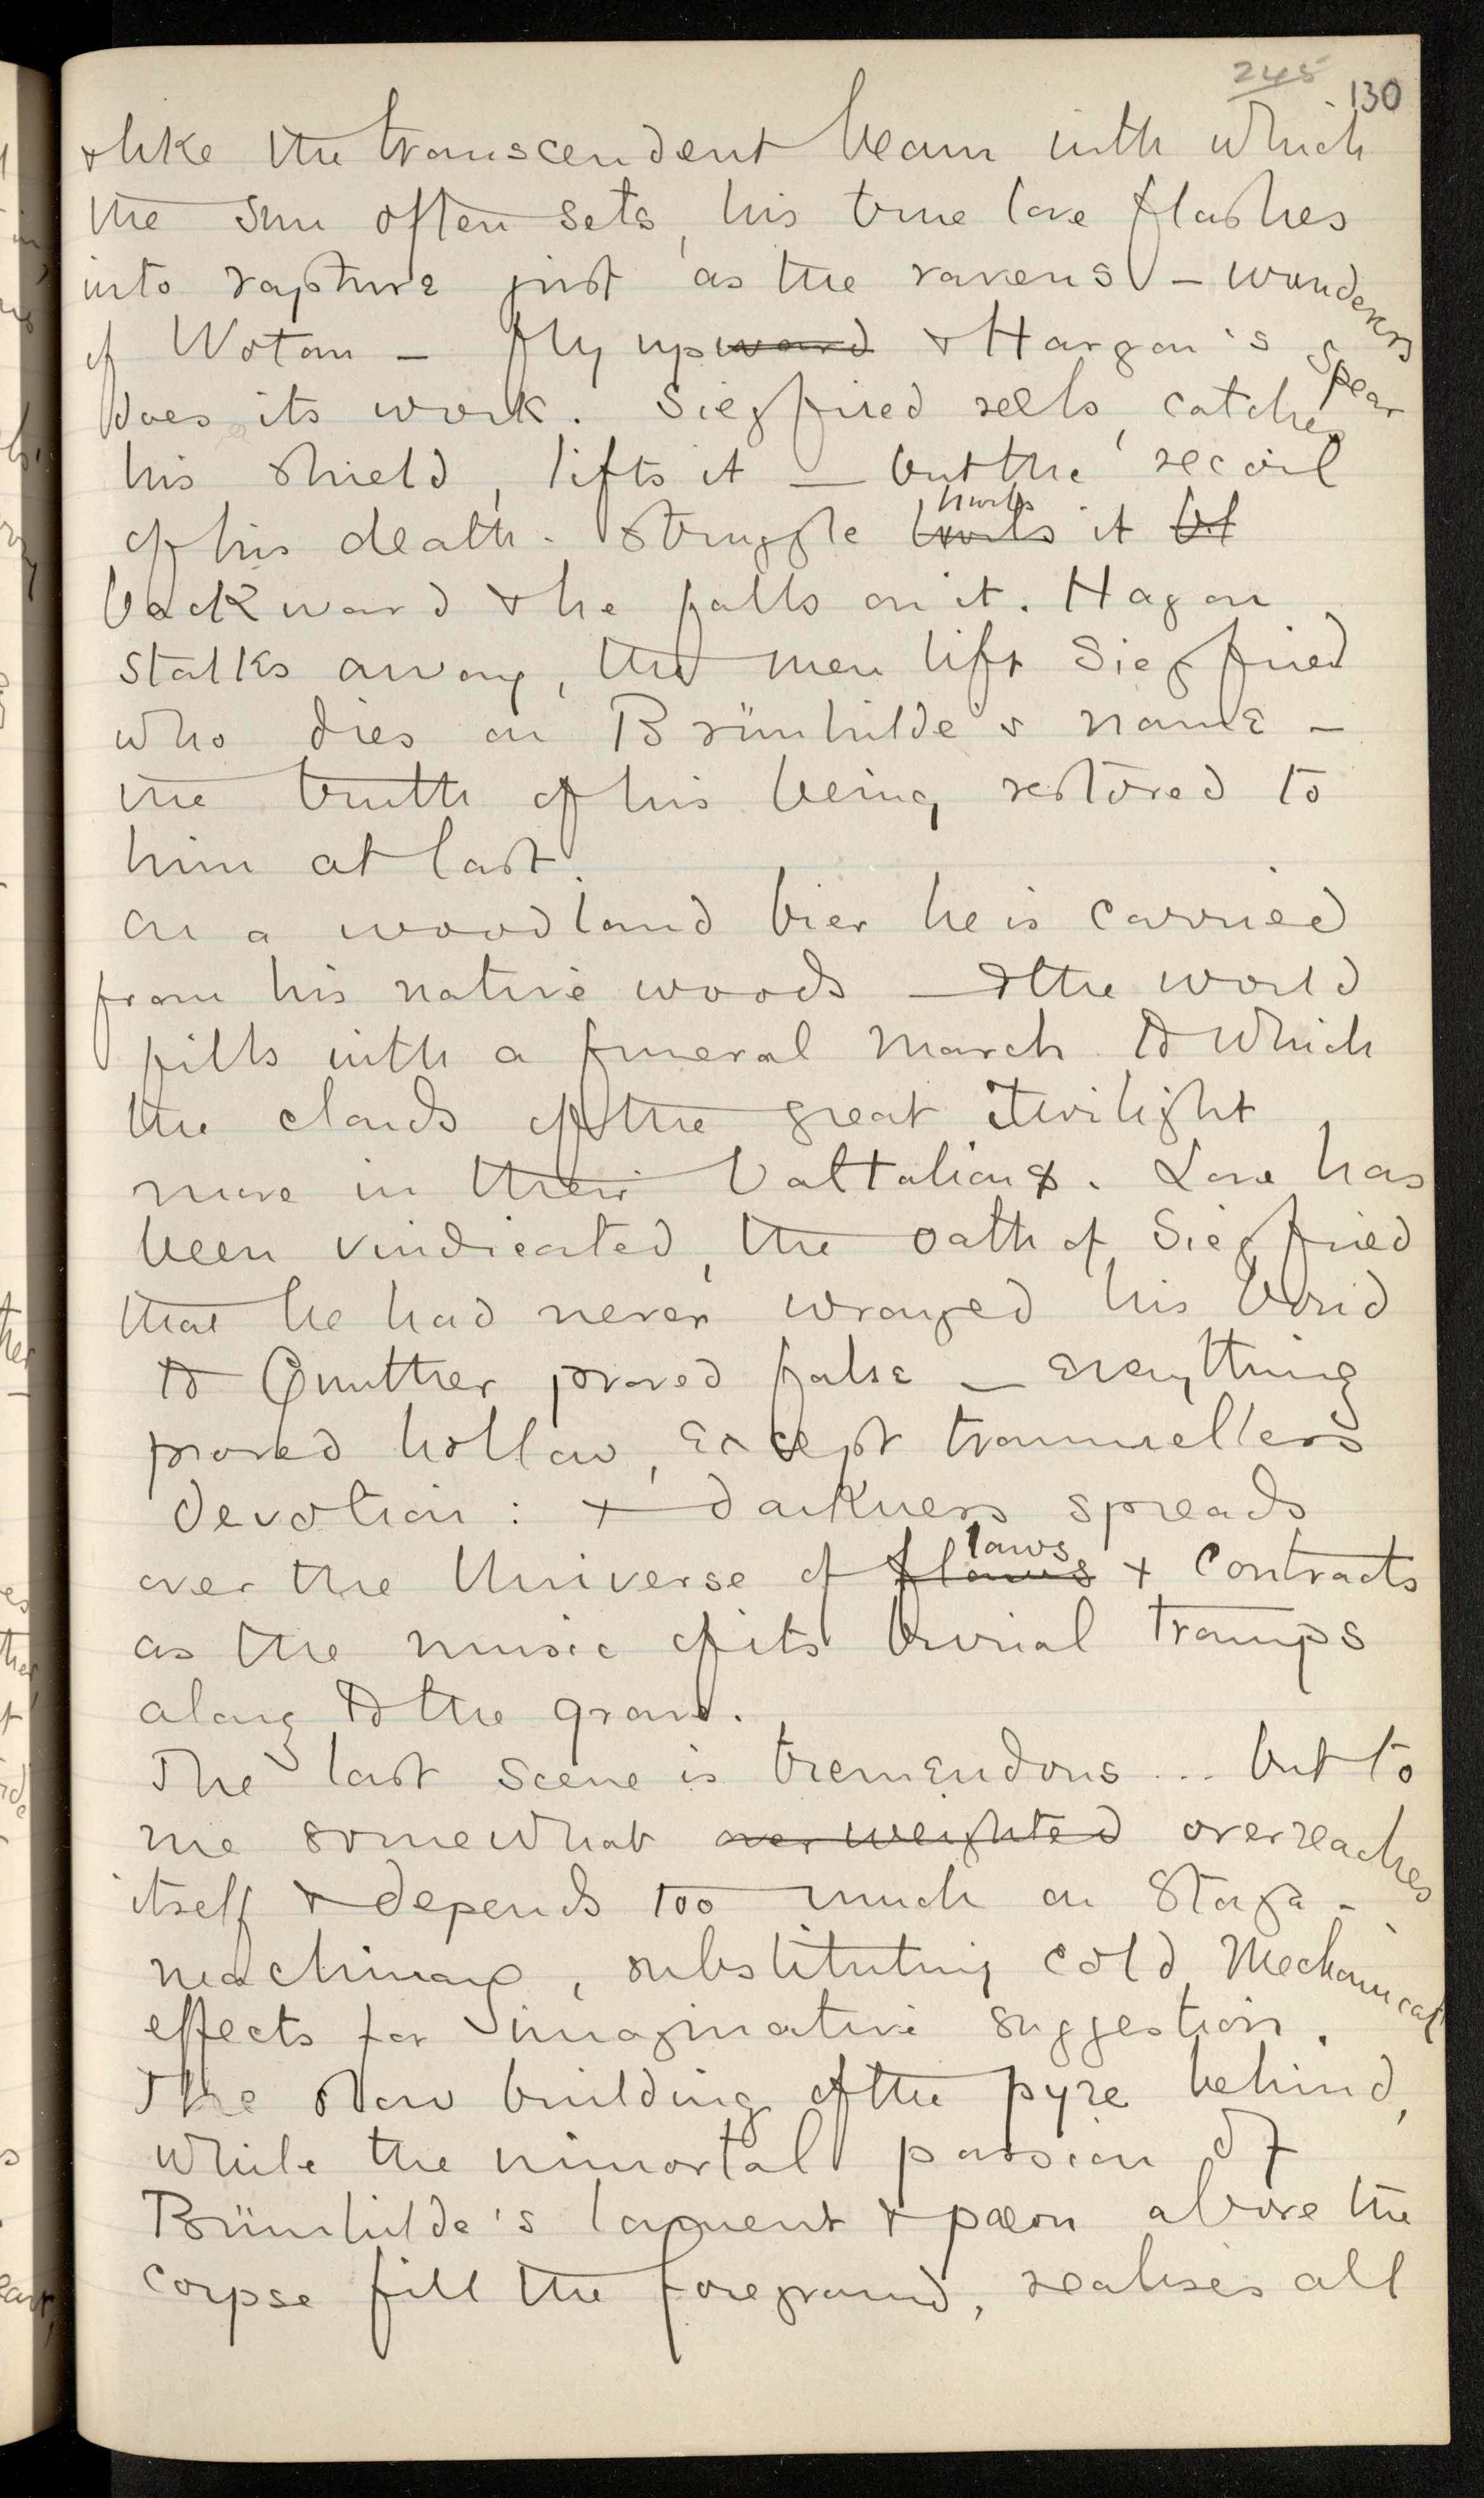 245 130
& like the transcendent beam with which
the sun often sets, his true love flashes
into rapture just as the ravens - wanderers
of Wotan - fly upward & Hargan's spear
does its work. Siegfried reels, catches
his shield, lifts it - but the recoil
of his death-struggle hurls hurls it bl
backward & he falls on it. Hagan
stalks away, the men lift Siegfried
who dies on Brünhilde's name -
the truth of his being restored to
him at last.
On a woodland bier he is carried
from his native woods - & the world
fills with a funeral march to which
the clouds of the great Twilight
move in their battalions. Love has
been vindicated, the oath of Siegfried
that he had never wronged his bond
to Gunther proved false - everything
proved hollow, except trammelless
devotion: & darkness spreads
over the Universe of flaws laws & contracts
as the music of its burial tramps
along to the grave.
The last scene is tremendous ... but to
me somewhat overweighted overreaches
itself & depends too much on stage-
machinary, substituting cold, mechanical
effects for imaginative suggestion.
The slow building of the pyre behind,
while the immortal passion of
Brünhilde's lament & pæan above the
corpse fill the foreground, realises all